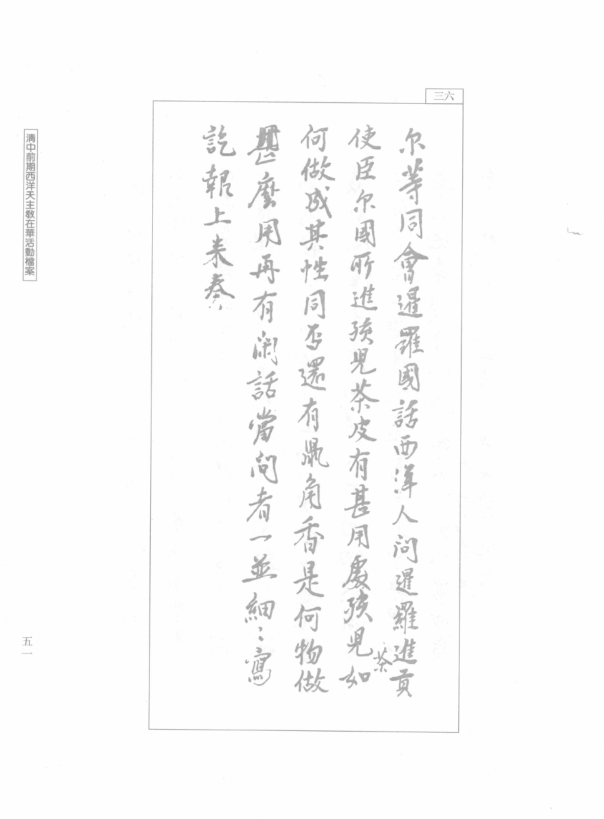 三六
尔等同會暹羅國話西洋人问暹羅進貢
使臣尔國所進孩児茶皮有甚用處孩児茶如
何做成其性同否還有鼠角香是何物做
甚麼用再有闲話當问者一並細〻寫
訖報上来奏
清中前期西洋天主教在華活動檔案
五一